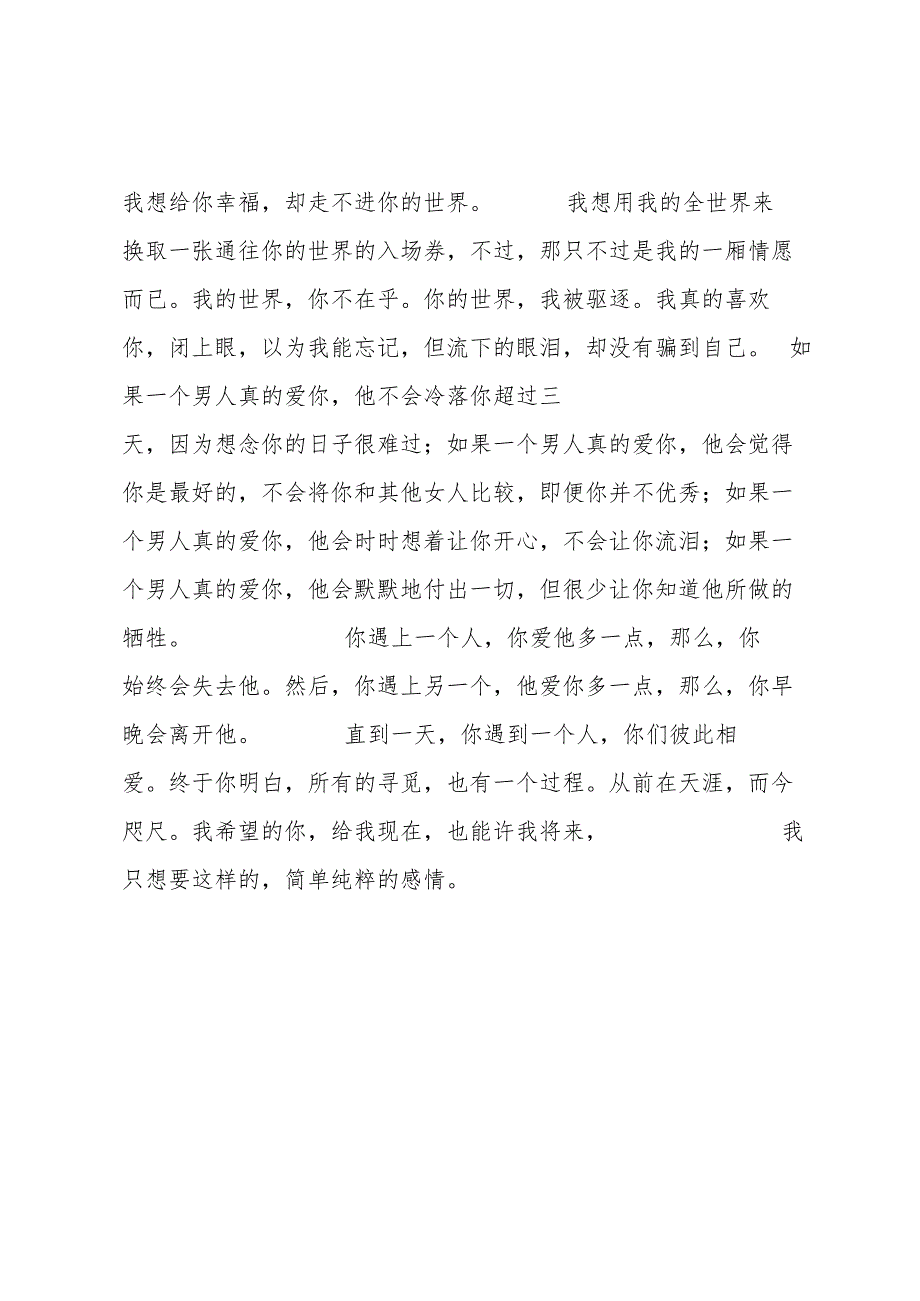 我想给你幸福，却走不进你的世界。 我想用我的全世界来
换取一张通往你的世界的入场券，不过，那只不过是我的一厢情愿
而已。我的世界，你不在乎。你的世界，我被驱逐。我真的喜欢
你，闭上眼，以为我能忘记，但流下的眼泪，却没有骗到自己。 如
果一个男人真的爱你，他不会冷落你超过三
天，因为想念你的日子很难过；如果一个男人真的爱你，他会觉得
你是最好的，不会将你和其他女人比较，即便你并不优秀；如果一
个男人真的爱你，他会时时想着让你开心，不会让你流泪；如果一
个男人真的爱你，他会默默地付出一切，但很少让你知道他所做的
牺牲。 你遇上一个人，你爱他多一点，那么，你
始终会失去他。然后，你遇上另一个，他爱你多一点，那么，你早
晚会离开他。 直到一天，你遇到一个人，你们彼此相
爱。终于你明白，所有的寻觅，也有一个过程。从前在天涯，而今
咫尺。我希望的你，给我现在，也能许我将来， 我
只想要这样的，简单纯粹的感情。